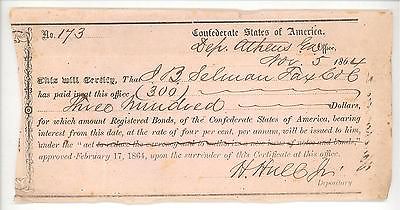 No. 173
Confederate States of America,
Dep. Athens Ga Office,
Nov. 5 1864
This will Certify, That J. B. Selman Tax Col
has paid in at this office (300)
Three Hundred Dollars,
for which amount Registered Bonds, of the Confederate States of America, bearing
interest from this date, at the rate of four per cent. per annum, will be issued to him
under the "act to reduce the currency and to authorize a new issue of notes and bonds"
approved February 17, 1864, upon the surrender of this Certificate at this office.
H. Hull Jr.
Depositary